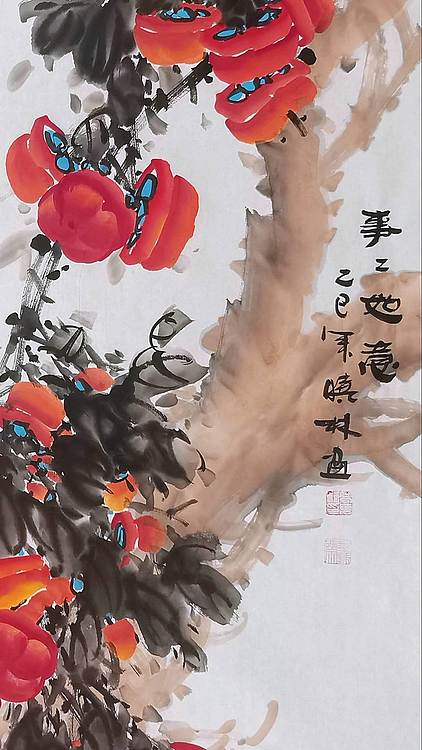 事々如意
乙巳年晓林画